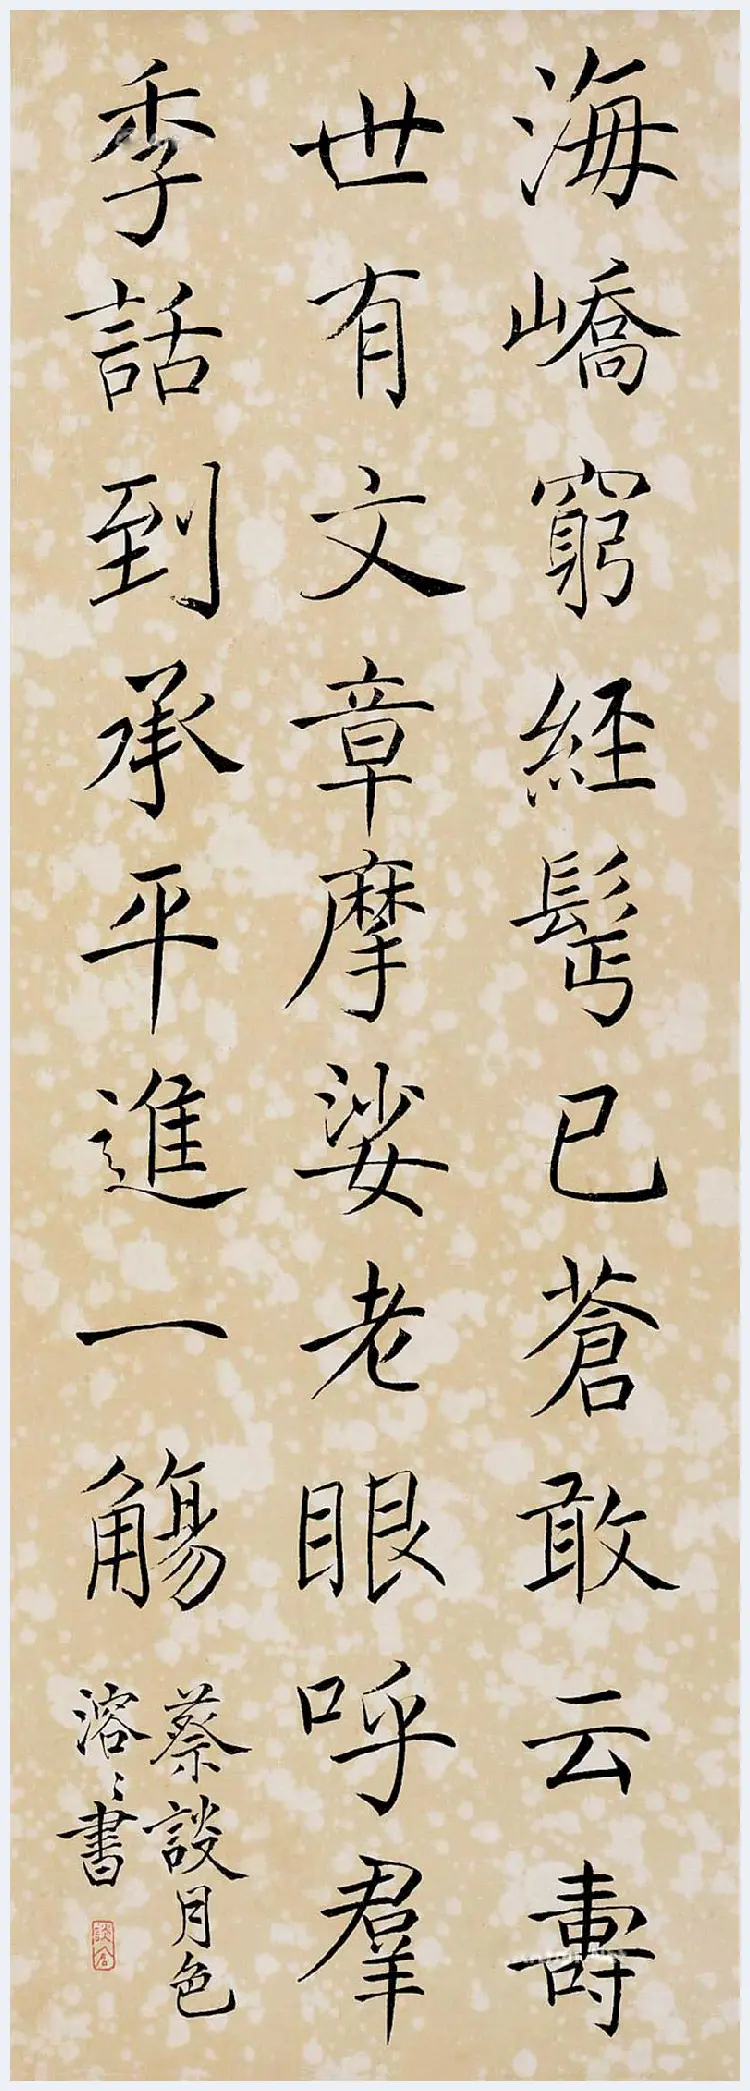 海嶠窮經鬢已蒼敢云壽
世有文章摩娑老眼呼羣
季話到承平進一觴
蔡談月色
溶〻書